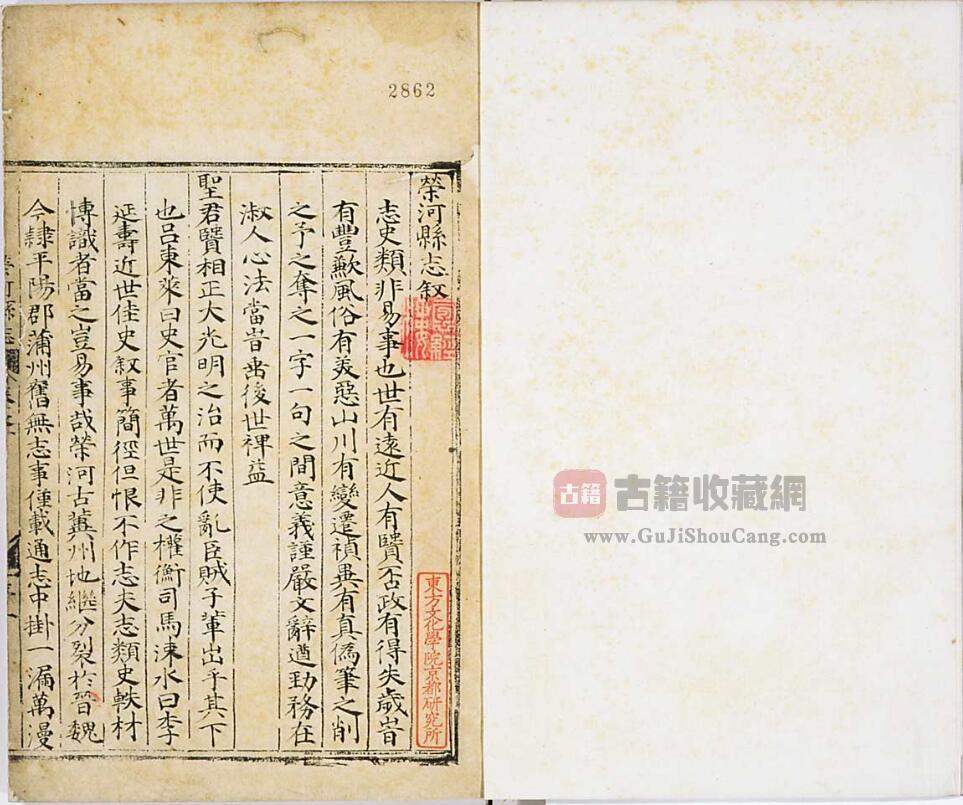 2862
榮河縣志叙
志史類非易事也世有遠近人有贒否政有得失歲旹
有豐歉風俗有美惡山川有變遷禎異有真僞筆之削
之予之奪之一字一句之間意義謹嚴文辭遒勁務在
淑人心法當旹垂後世裨益
聖君贒相正大光明之治而不使亂臣賊子軰出乎其下
也吕東萊曰史官者萬世是非之權衡司馬涑水曰李
延壽近世佳史叙事簡徑但恨不作志夫志類史軼材
博識者當之豈易事哉榮河古冀州地繼分裂於晉魏
今隷平陽郡蒲州舊無志事僅載通志中掛一漏萬漫
東方文化學院京都研究所
古籍
古籍收藏網
www.GuJiShouCang.com